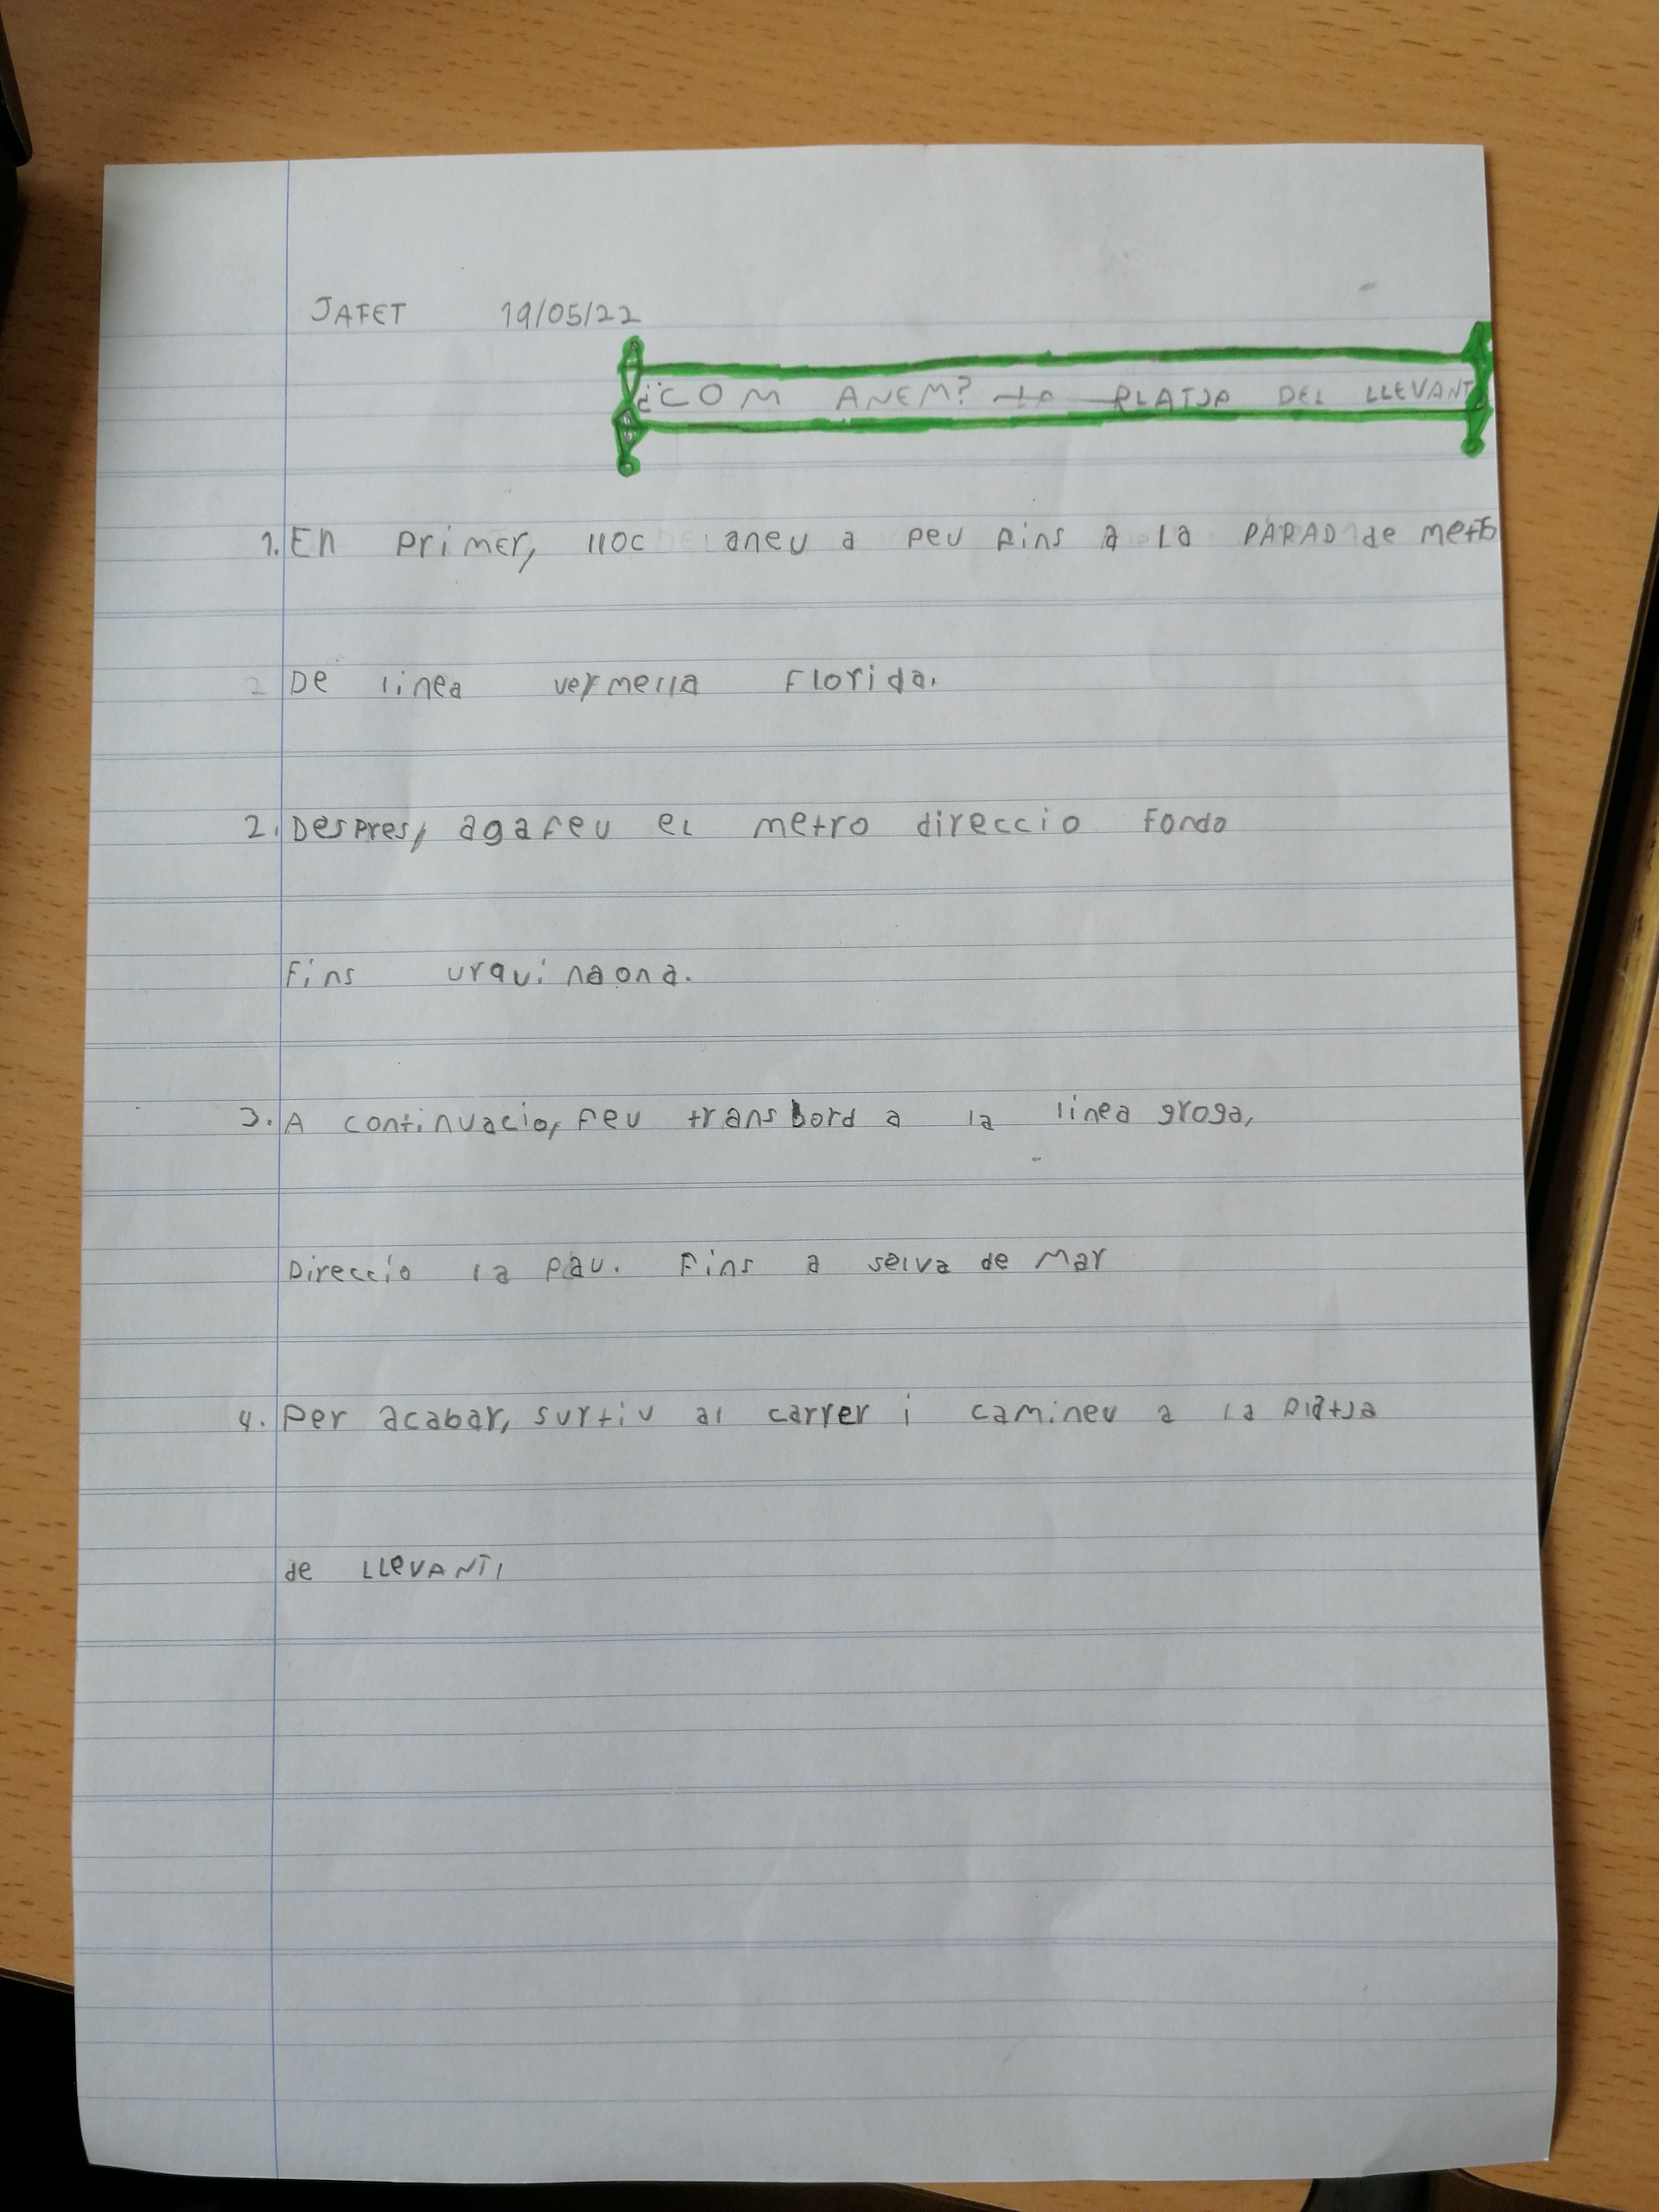 JAFET 19/05/22
¿COM ANEM? LA PLATJA DEL LLEVANT
1. En primer, lloc aneu a peu fins a la PARAD de metro
De linea vermella Florida.
2. Despres, agafeu el metro direccio Fondo
Fins urquinaona.
3. A continuacio, feu transbord a la linea groga,
Direccio la pau. Fins a selva de Mar
4. Per acabar, surtiu al carrer i camineu a la platja
de LLEVANT,